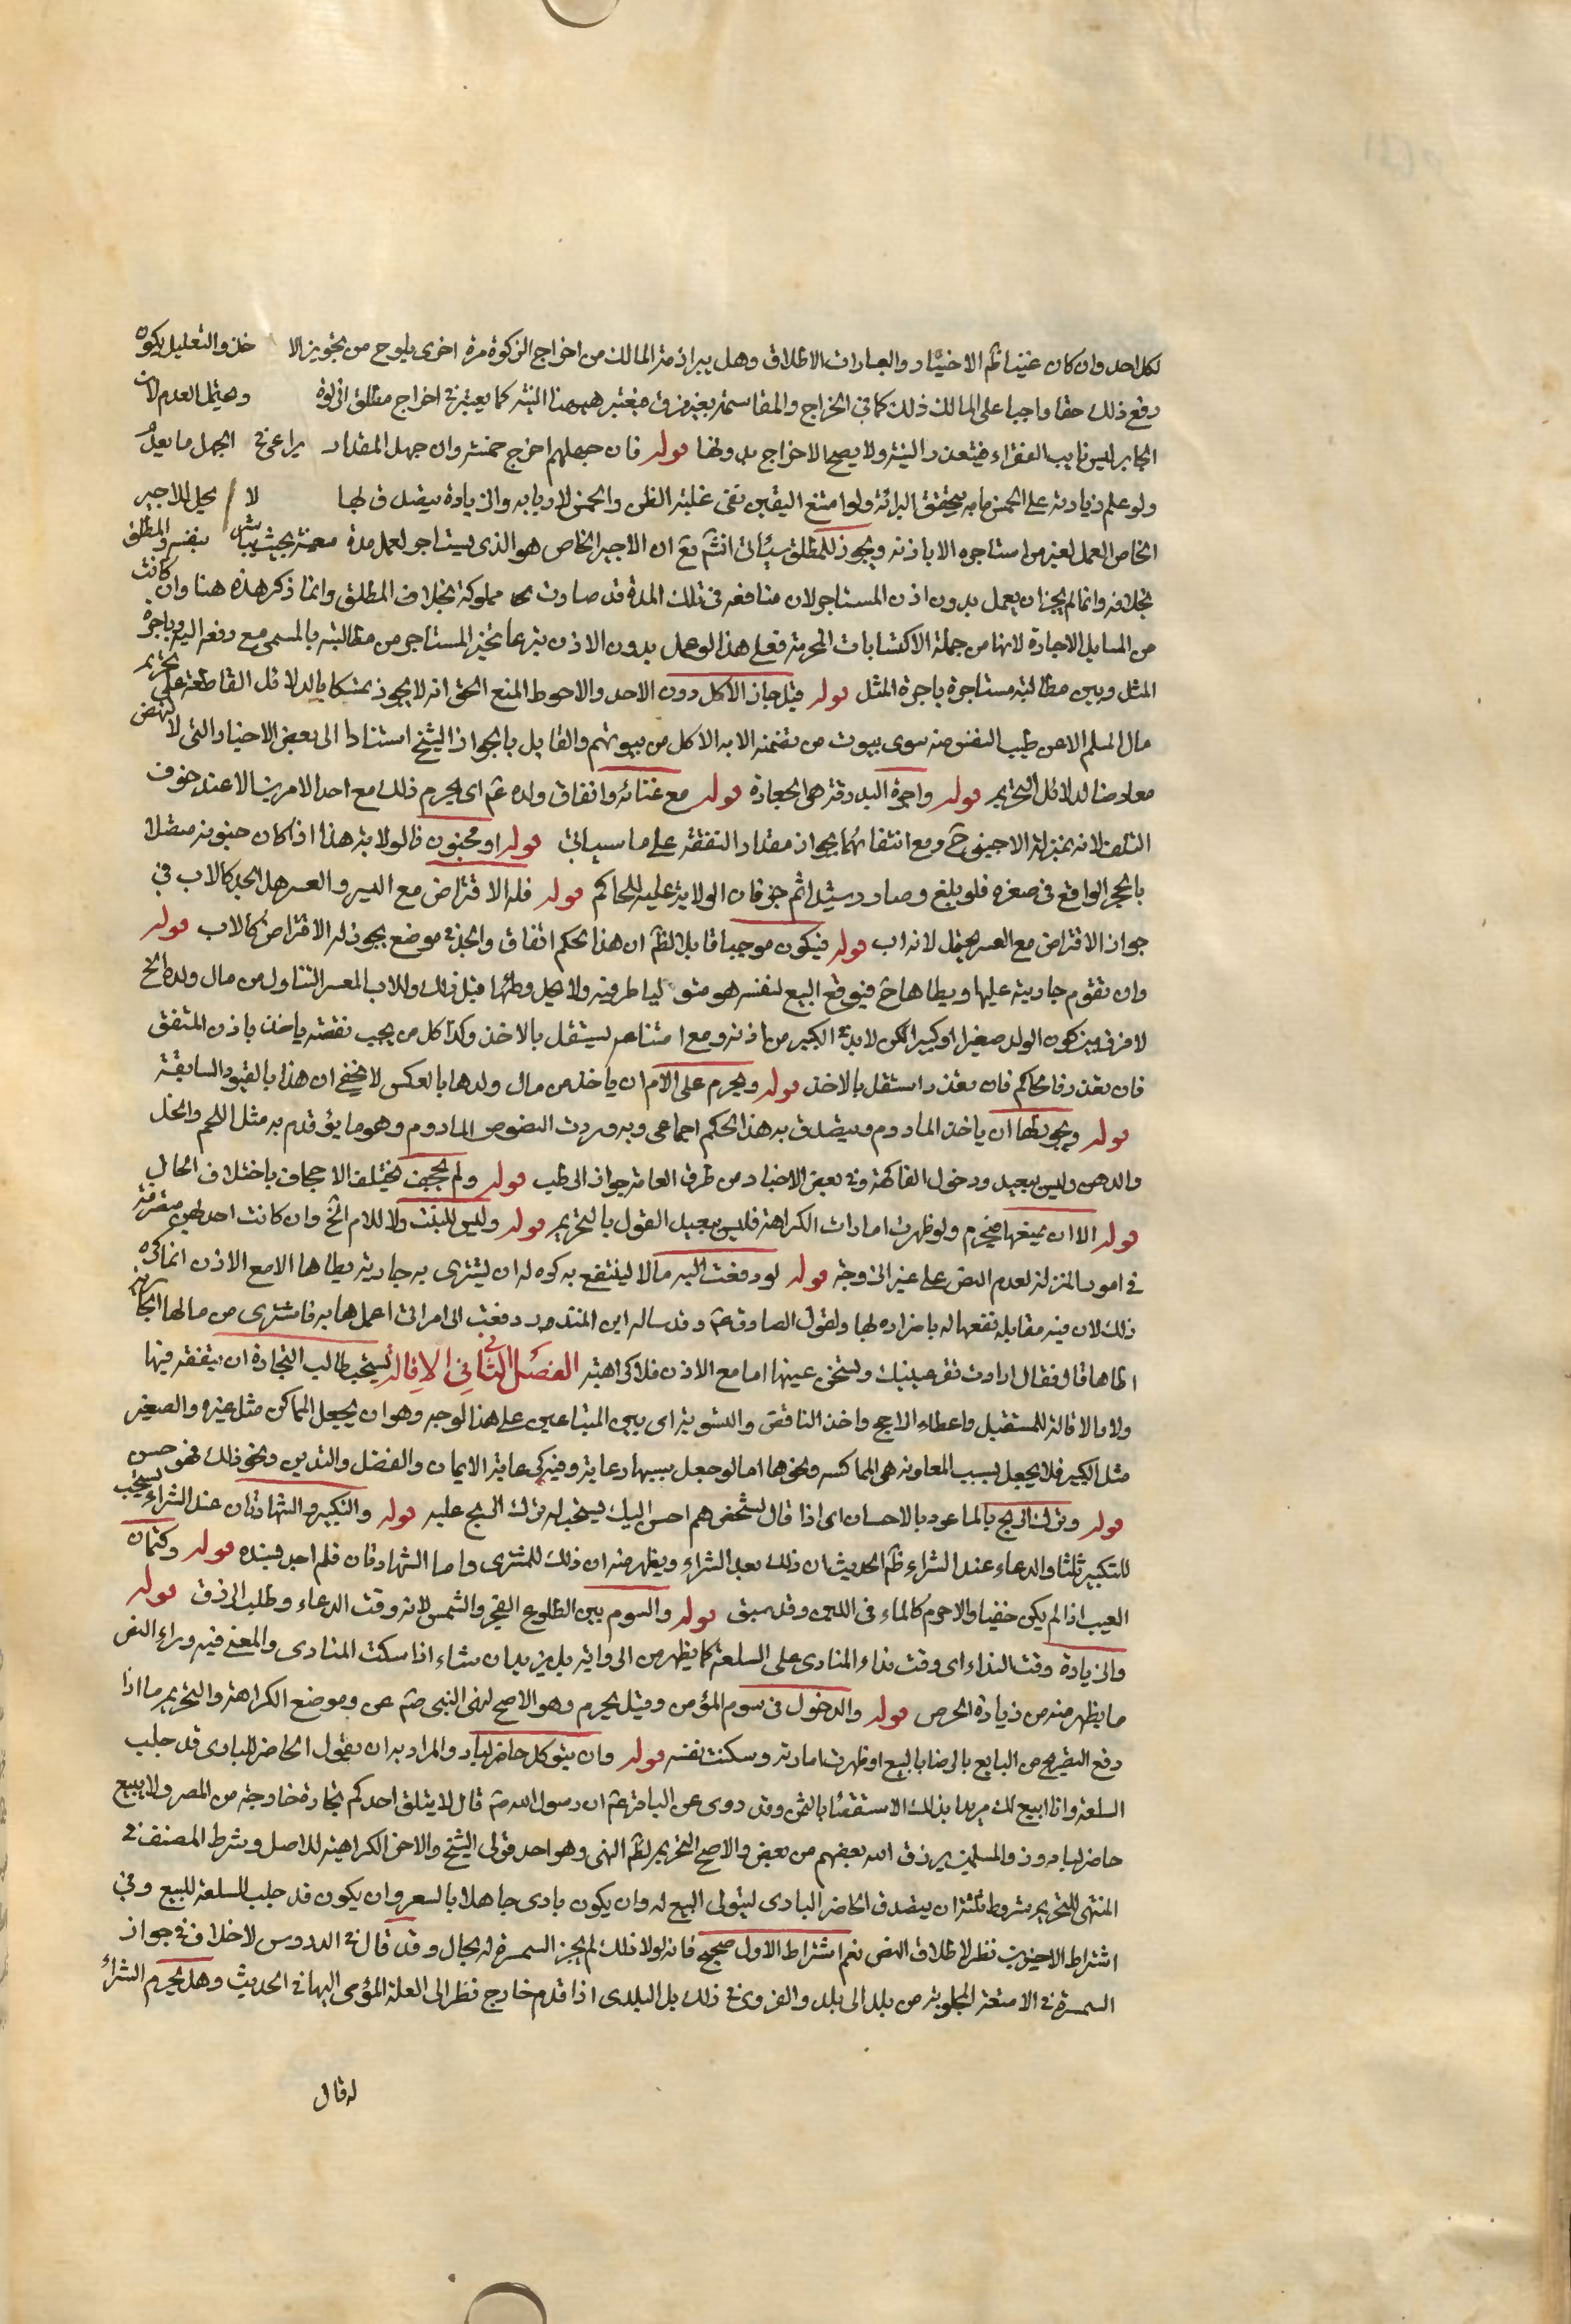 لكل احد وان كان غنيا ظم الاخبار والعبارات الاطلاق وهل يبرا ذمة المالك من اخراج الزكوة مرة اخرى يلوح من تجويز الا خذ والتعليل بكونه
دفع ذلك حقا واجبا على المالك ذلك كما في الخراج والمقاسمة بغير فرق فيعتبر ههنا النية كما يعتبر في اخراج مطلق الزكوة ويحتمل العدم لان
الجابر ليس نايب الفقراء فيتعذر النية ولا يصح الاخراج بدونها قوله فان جهلهم اخرج خمسه وان جهل المقدار يراعى في المجمل ما يعلم
ولو علم زيادته على الخمس ما به يتحقق البرائة ولو امتنع اليقين كفى غلبة الظن والخمس لاربابه والزيادة يتصدق بها لا يحل للاجير
الخاص العمل لغير من استاجره الا باذنه ويجوز للمطلق سياتي انشم تع ان الاجير الخاص هو الذي يستاجر لعمل مدة معينة بحيث يباشر بنفسه والمطلق
بخلافه وانما لم يجز ان يعمل بدون اذن المستاجر لان منافعه في تلك المدة قد صارت مملوكة بخلاف المطلق وانما ذكر هذه هنا وان كانت
من المسايل الاجارة لانها من جملة الاكتسابات المحرمة فعلى هذا لو عمل بدون الاذن تبرعا تخير المستاجر من مطالبته بالمسمى مع دفعه اليه وباجرة
المثل وبين مطالبة مستاجره باجرة المثل قوله قيل جاز الاكل دون الاخذ والاحوط المنع الحق انه لا يجوز تمسكا بالدلائل القاطعة على تحريم
مال المسلم الا عن طيب النفس منه سوى بيوت من تضمنه الاية الاكل من بيوتهم والقايل بالجواز الشيخ استنادا الى بعض الاخبار التي لا تنهض
معارضا لدلائل التحريم قوله واجرة البدرقة هي الجعارة قوله مع غنائه وانفاق ولده عم اى يحرم ذلك مع احد الامرين الا عند خوف
التلف لانه بمنزلة الاجنبي ح ومع انتفائهما يجوز اخذ مقدار النفقة على ما سياتي قوله او مجنون فالولاية هذا اذا كان جنونه متصلا
بالحجر الواقع في صغره فلو بلغ وصار رشيدا ثم جن فان الولاية عليه للحاكم قوله فله الاقتراض مع اليسر والعسر هل الجد كالاب في
جواز الاقتراض مع العسر يحتمل لانه اب قوله فيكون موجبا قابلا لظم ان هذا الحكم اتفاق والجد في موضع يجوز له الاقتراض كالاب قوله
وان تقوم جاريته عليها ويطاها ح فيوقع البيع لنفسه هو متولي لطرفيه ولا يحل وطئها قبل ذلك وللاب المعسر التناول من مال ولده الخ
لا فرق بين كون الولد صغيرا او كبيرا لكن لابد في الكبير من اذنه ومع امتناعه يستقل بالاخذ وكذا كل من يجب نفقته ياخذ باذن المنفق
فان تعذر فالحاكم فان تعذر استقل بالاخذ قوله ويحرم على الام ان ياخذ من مال ولدها بالعكس لا يخفى ان هذا بالقيود السابقة
قوله ويجوز لها ان ياخذ المادوم ويتصدق به هذا الحكم اجماعي وبه وردت النصوص المادوم وهو ما يؤتدم به مثل اللحم والخل
والدهن وليس ببعيد ودخول الفاكهة وفي بعض الاخبار من طرق العامة جواز الرطب قوله ولم يجحف يختلف الاجحاف باختلاف الحال
قوله الا ان يمنعها فيحرم ولو ظهرت امارات الكراهة فليس ببعيد القول بالتحريم قوله وليس للبنت ولا للام الخ وان كانت احديهن متصرفة
في امور المنزل لعدم النص على غير الزوجة قوله لو دفعت اليه مالا لينتفع به كره له ان يشترى به جارية يطاها الا مع الاذن انما كره
ذلك لان فيه مقابلة نفعها له باضراره لها ولقول الصادق عم وقد ساله ابن المنذر دفعت الى امراتي اعمل به فاشترى من مالها الجارية
اطاها قال فقال ارادت تقر عينك وتسخن عينها اما مع الاذن فلا كراهة الفصل الثاني الاقالة يستحب طالب التجارة ان يتفقه فيها
ولا والاقالة للمستقيل واعطاء الراجح واخذ الناقص والتسوية اى بين المتبايعين على هذا الوجه وهو ان يجعل المماكس مثل غيره والصغير
مثل الكبير فلا يجعل بسبب المعاونة هى المماكسة ونحوها اما لو جعل بسببها رعاية وفيه كرعاية الايمان والفضل والتدين ونحو ذلك فهو حسن
قوله وترك الربح بالماعود بالاحسان اى اذا قال لشخص هم احسن اليك فيستحب له ترك الربح عليه قوله والتكبير والشهادتان عند الشراء يستحب
للتكبير ثلثا والدعاء عند الشراء ظم الحديث ان ذلك بعد الشراء ويظهر منه ان ذلك للمشترى واما الشهادتان فلم اجد بسنده قوله وكتمان
العيب اذا لم يكن خفيا والا حرم كالماء في اللبن وقد سبق قوله والسوم بين الطلوع الفجر والشمس لانه وقت الدعاء وطلب الرزق قوله
والزيادة وقت النداء اى وقت نداء المنادى على السلعة كما يظهر من الرواية بل يزيد ان شاء اذا سكت المنادى والمعنى فيه وراء النص
ما يظهر منه من زيادة الحرص قوله والدخول في سوم المؤمن وقيل يحرم وهو الاصح لنهى النبي صم عن وموضع الكراهة والتحريم ما اذا
دفع التصريح من البايع بالرضا بالبيع او ظهرت امارته وسكنت نفسه قوله وان يتوكل حاضر لباد والمراد به ان يقول الحاضر للبادى قد جلب
السلعة وانا ابيع لك مريدا بذلك الاستقصا بالثمن وقد روى عن الباقر عم ان رسول الله صم قال لا يتلق احدكم تجارة خارجة من المصر ولا يبيع
حاضر لباد وذو المسلمين يرزق الله بعضهم من بعض والاصح التحريم لظم النهى وهو احد قولى الشيخ والاخر الكراهية للاصل وشرط المصنف في
المنتهى للتحريم شروط ثلثة ان يتصدق الحاضر البادى ليتولى البيع له وان يكون بادى جاهلا بالسعر وان يكون قد جلب السلعة للبيع وفي
اشتراط الاخيرين نظر لاطلاق النص نعم اشتراط الاول صحيح فانه لولا ذلك لم يجز السمسرة له بحال وقد قال في الدروس لا خلاف في جواز
السمسرة في الامتعة المجلوبة من بلد الى بلد والقروى في ذلك بل البلدى اذا قدم خارج نظر الى العلة المؤمى اليها في الحديث وهل يحرم الشراء
له قال